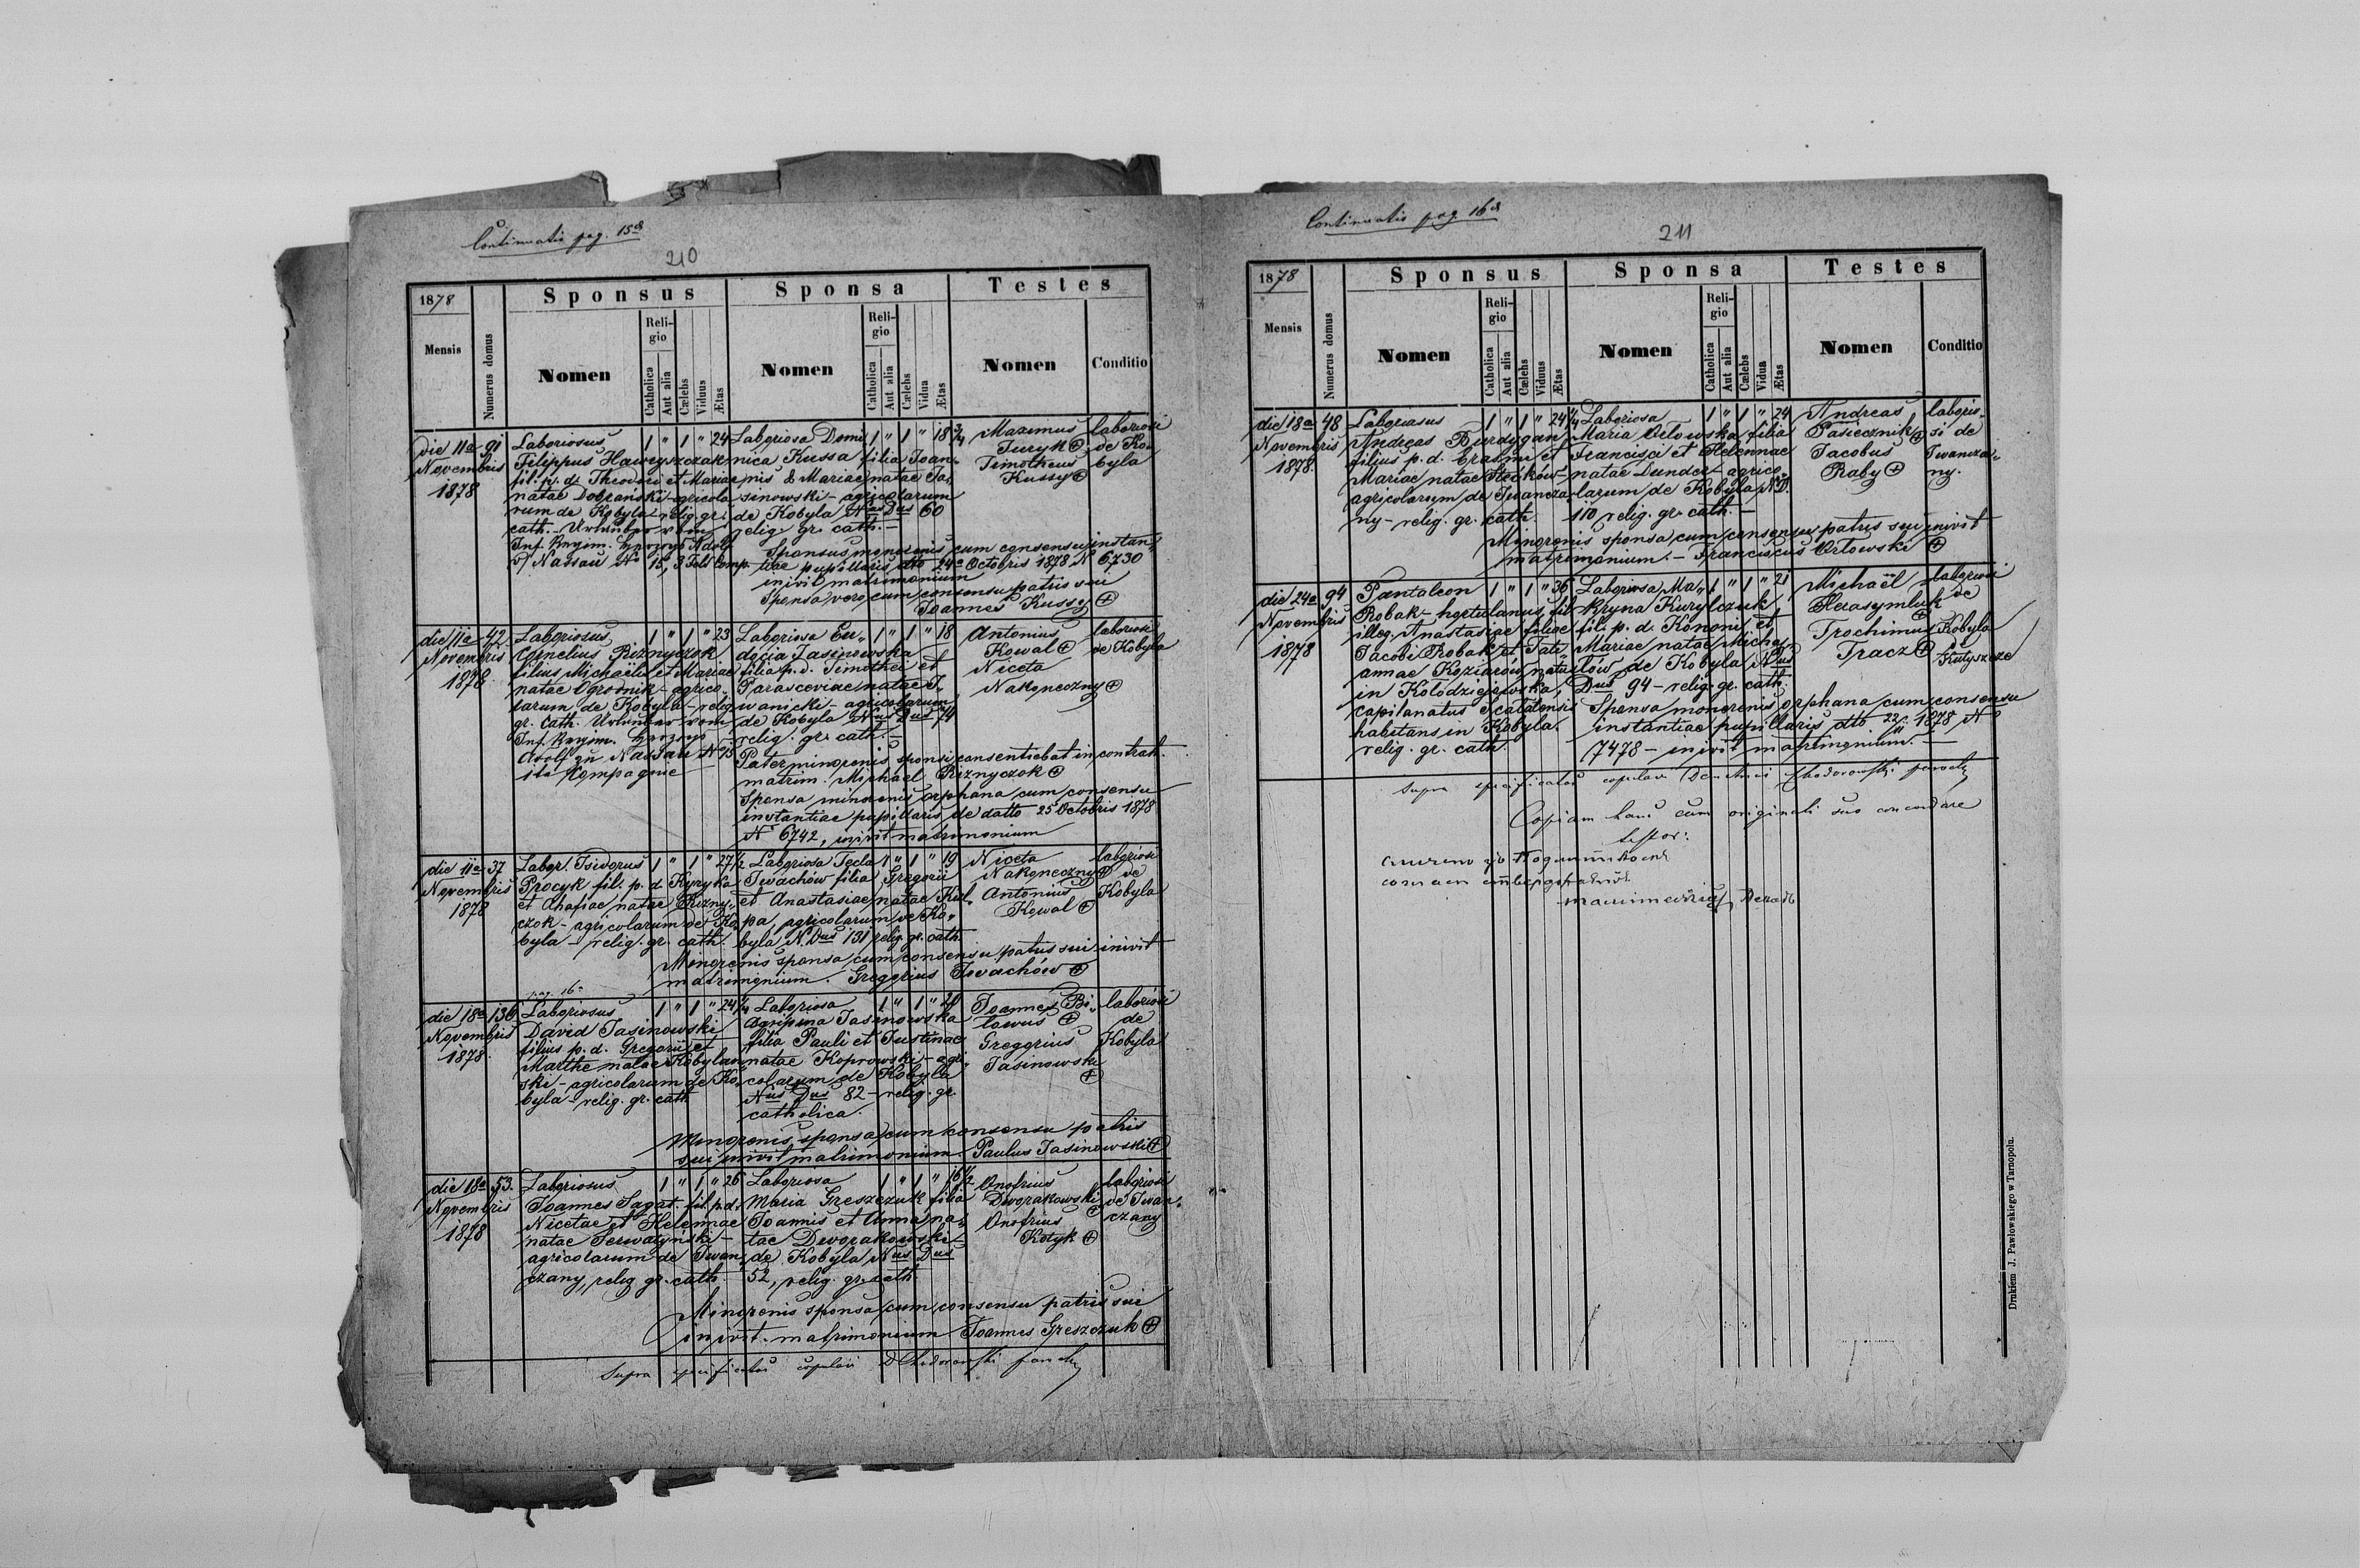 Continuatio pag. 15a
210
1878
Sponsus
Sponsa
Testes
Mensis
Numerus domus
Nomen
Religio
Catholica
Aut alia
Cælebs
Viduus
Ætas
Nomen
Religio
Catholica
Aut alia
Cælebs
Vidua
Ætas
Nomen
Conditio
die 11a
Novembris
1878
91
Laboriosus
Filippus Hawryszczak
fil. p. d. Theodori et Mariae
natae Dobrański - agricola
rum de Kobyla - relig. gr.
cath. - Urlauber vom
Inf. Regim. Herzog Adolf
v/ Nassau No 15, 3 Feld Comp.
1 " 1 " 24
Laboriosa Domi
nica Kussa filia Joan-
nis & Mariae natae Ja-
sinowski - agricolarum
de Kobyla Nus Dus 60
relig. gr. cath. -
1 " 1 " 18 3/4
Maximus
Juryk +
Timotheus
Kussy +
laboriosi
de Ko-
byla
Sponsus minorenis cum consensu instan-
tiae pupillaris dto 24a Octobris 1878 N 6730
inivit matrimonium
Sponsa vero cum consensu patris sui
Joannes Kussy +
die 11a
Novembris
1878.
42
Laboriosus
Cornelius Rożnyczok
filius Michaëlis et Mariae
natae Ogrodnik - agrico-
larum de Kobyla - relig.
gr. cath. Urlauber vom
Inf. Regim. Herzog
Adolf zu Nassau N 15
Kompagnie
1 " 1 " 23
Laboriosa Eu-
docia Jasinowska
filia p. d. Timothei et
Parasceviae natae I-
wanicki - agricolarum
de Kobyla Nus Dus 74
relig. gr. cath. -
1 " 1 " 18
Antonius
Kowal +
Niceta
Nakoneczny +
laboriosi
de Kobyla
Pater minorenis sponsi consentiebat in contrah.
matrim. Michaël Rożnyczok +
Sponsa minorenis orphana cum consensu
instantiae pupillaris de datto 25 Octobris 1878
N 6742, inivit matrimonium
die 11a
Novembris
1878
37
Labor. Isidorus
Procyk fil. p. d. Kyryka
et Ahafiae natae Rożny-
czok - agricolarum de Ko-
byla - relig. gr. cath.
1 " 1 " 27 1/2
Laboriosa Tecla
Iwachów filia Gregorii
et Anastasiae natae Kul-
pa, agricolarum de Ko-
byla N. Dus 131 relig. gr. cath.
1 " 1 " 19
Niceta
Nakoneczny +
Antonius
Kowal +
laboriosi
de
Kobyla
Minorenis sponsa cum consensu patris sui inivit
matrimonium. Gregorius Iwachów +
pag. 16
die 18a
Novembris
1878.
136
Laboriosus
David Jasinowski
filius p. d. Gregorii et
Marthe natae Kobylan-
ski - agricolarum de Ko-
byla - relig. gr. cath
1 " 1 " 24 1/4
Laboriosa
Agripina Jasinowska
filia Pauli et Justinae
natae Koprowski - agri-
colarum de Kobyla
Nus Dus 82 - relig. gr.
catholica.
1 " 1 " 20
Joannes Bi-
lowus +
Gregorius
Jasinowski
+
laboriosi
de
Kobyla
Minorenis sponsa cum konsensu patris
sui inivit matrimonium Paulus Jasinowski +
die 18a
Novembris
1878
53.
Laboriosus
Joannes Sagat fil. p. d.
Nicetae et Helennae
natae Serwatynski -
agricolarum de Iwan-
czany, relig gr. cath
1 " 1 " 26
Laboriosa
Maria Greszczuk filia
Joannis et Anna na-
tae Dworakowski -
de Kobyla Nus Dus
52, relig. gr. cath
1 " 1 " 16 1/2
Onofrius
Dworakowski +
Onofrius
Kotyk +
laboriosi
de Iwan-
czany
Minorenis sponsa cum consensu patris sui
inivit matrimonium Joannes Greszczuk +
Supra specificatos copulavi DChodorowski parochus
Continuatio pag 16a
211
1878
Sponsus
Sponsa
Testes
Mensis
Numerus domus
Nomen
Religio
Catholica
Aut alia
Cælebs
Viduus
Ætas
Nomen
Religio
Catholica
Aut alia
Cælebs
Vidua
Ætas
Nomen
Conditio
die 18a
Novembris
1878.
48
Laboriosus
Andreas Burdygan
filius p. d. Erasmi et
Mariae natae Steców -
agricolarum de Iwancza-
ny - relig. gr. cath.
1 " 1 " 24 1/4
Laboriosa
Maria Orlowska filia
Francisci et Helennae
natae Dunder - agrico-
larum de Kobyla N D.
110 relig. gr. cath. -
1 " 1 " 24
Andreas
Pasiecznik +
Jacobus
Raby +
laborio-
si de
Iwancza-
ny.
Minorenis sponsa cum consensu patris sui inivit
matrimonium. - Franciscus Orłowski +
die 24a
Novembris
1878
94
Pantaleon
Robak - hortulanus, fil
illeg. Anastasiae filiae
Jacobi Robak et Tati-
annae Koziarów, natus
in Kołodziejówka,
capitanatus Scalatensis
habitans in Kobyla.
relig. gr. cath.
1 " 1 " 36
Laboriosa Ma-
kryna Kurylczuk
fil. p. d. Kononi et
Mariae natae Micha-
iłów de Kobyla Nus
Dus 94 - relig. gr. cath.
1 " 1 " 21
Michaël
Herasymluk
+
Trochimus
Tracz +
laboriosi
de
Kobyla
Kutyszcze
Sponsa minorenis orphana cum consensu
instantiae pupillaris dtto 22 1878 N
7478 - inivit matrimonium. -
Supra specificatos copulavi Demetrius Chodorowski parochus
Copiam hanc cum originali suo concordare
testor:
Drukiem J. Pawłowskiego w Tarnopolu.